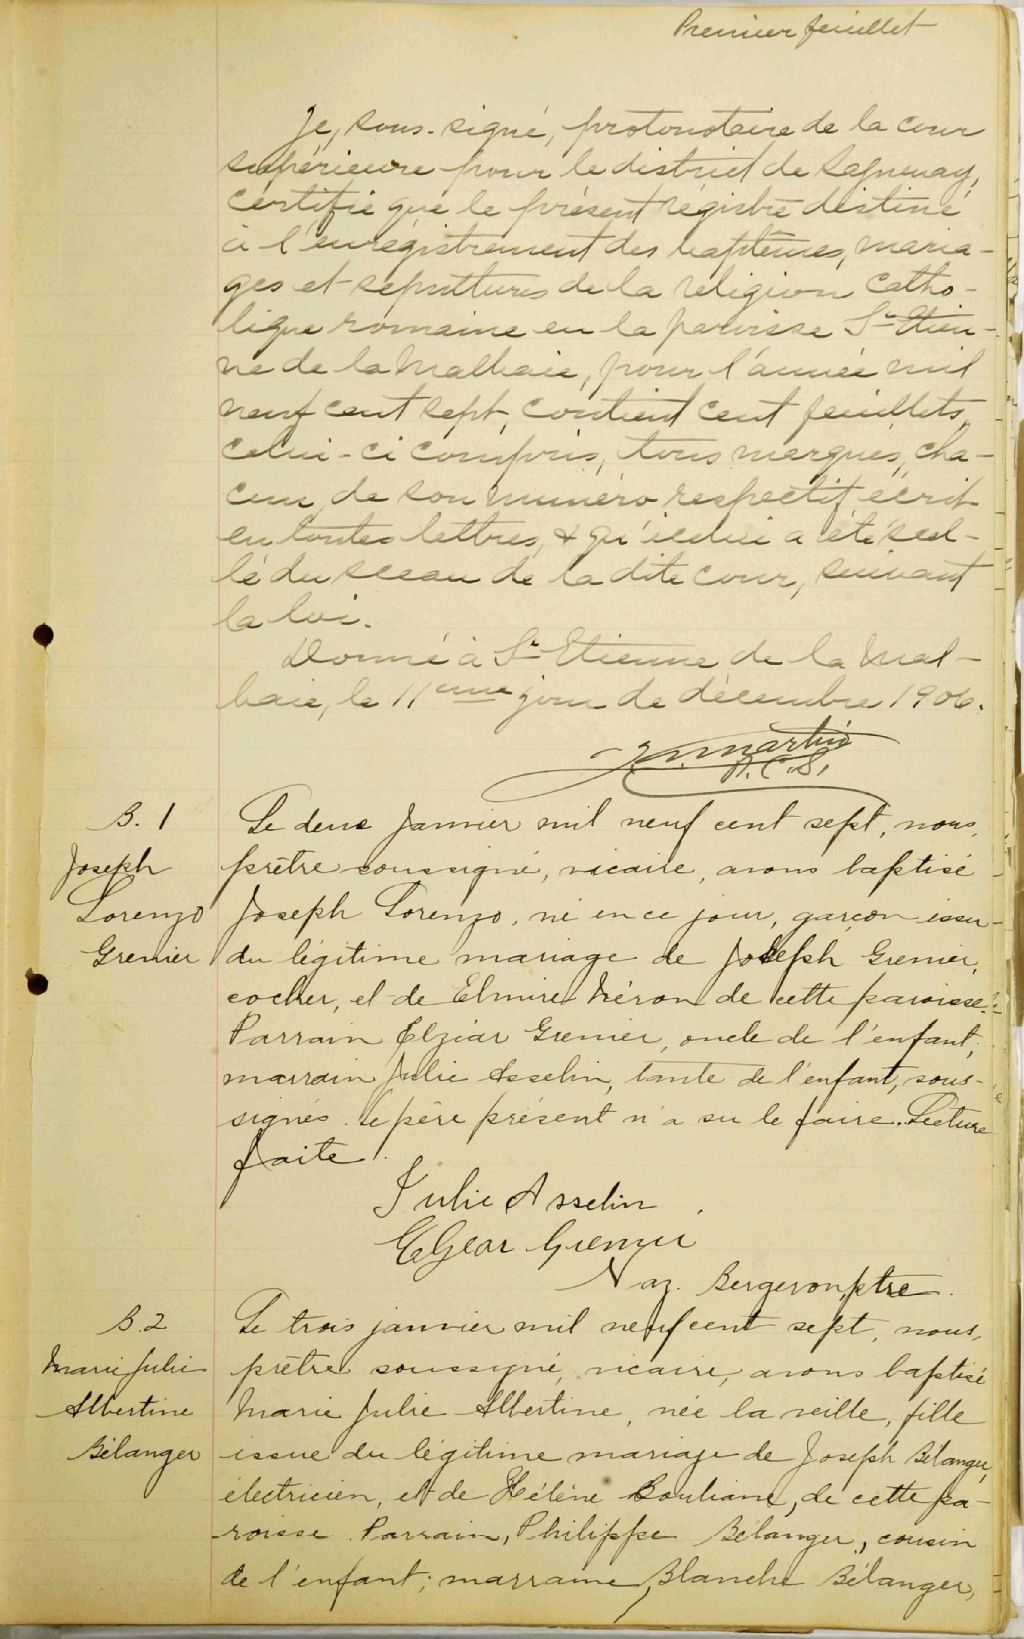 Premier feuillet
Je, sous-signé, protonotaire de la cour
supérieure pour le district de Saguenay,
certifie que le présent régistre destiné
à l'enrégistrement des baptêmes, maria-
ges et sepultures de la religion catho-
lique romaine en la paroisse St Etien-
ne de la Malbaie, pour l'année mil
neuf cent sept, contient cent feuillets,
celui-ci compris, tous marqués, cha-
cun, de son numéro respectif écrit
en toutes lettres, & qu'icelui a été scel-
lé du sceau de la dite cour, suivant
la loi.
Donné à St Etienne de la Mal-
baie, le 11eme jour de décembre 1906.
Martin
P.C.S.
B. 1
Joseph
Lorenzo
Grenier
Le deux Janvier mil neuf cent sept, nous,
prêtre soussigné, vicaire, avons baptisé
Joseph Lorenzo, né en ce jour, garçon issu
du légitime mariage de Joseph Grenier,
cocher, et de Elmire Néron de cette paroisse.
Parrain Elzéar Grenier, oncle de l'enfant;
marrain Julie Asselin, tante de l'enfant, sous-
signés. Le père présent n'a su le faire. Lecture
faite.
Julie Asselin
Elzear Grenier
Naz. Bergeron, ptre.
B. 2
Marie Julie
Albertine
Bélanger
Le trois janvier mil neuf cent sept, nous,
prêtre soussigné, vicaire, avons baptisé
Marie Julie Albertine, née la veille, fille
issue du légitime mariage de Joseph Bélanger,
électricien, et de Hélène Bouliane, de cette pa-
roisse. Parrain, Philippe Bélanger, cousin
de l'enfant; marraine, Blanche Bélanger,